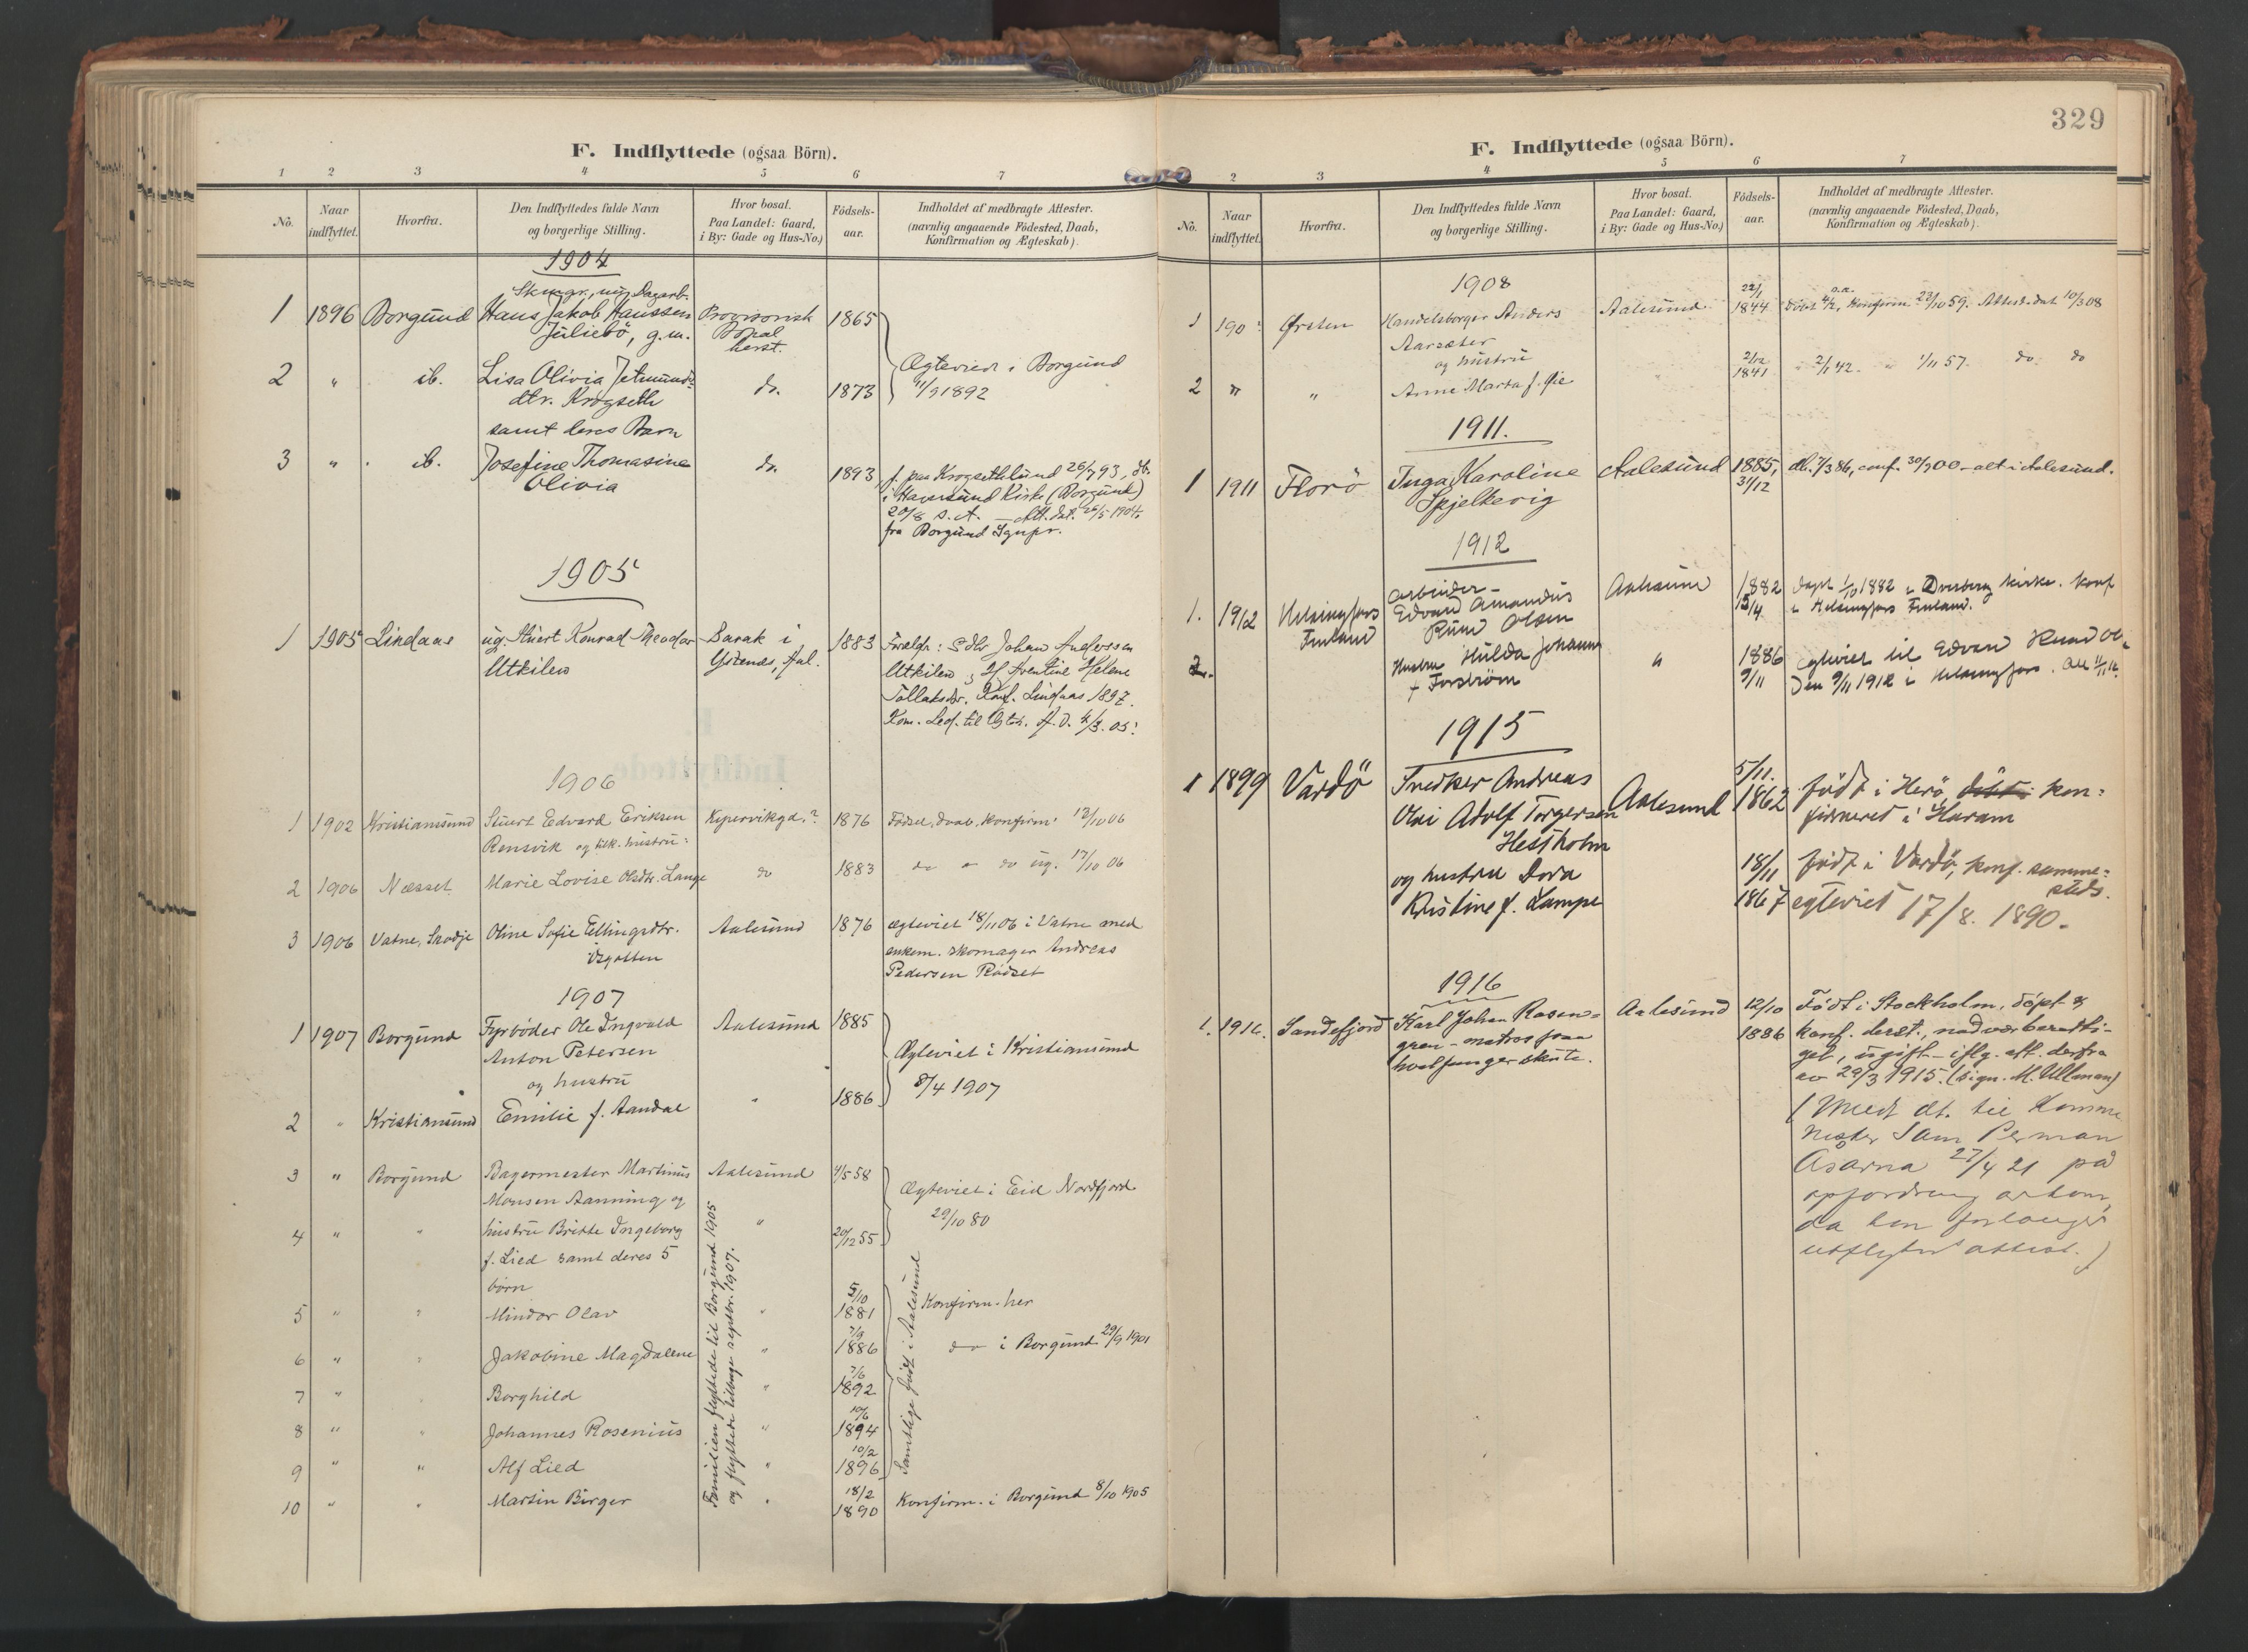 F. Indflyttede (ogsaa Börn).
1 2 3 4 5 6 7
No. Naar indflyttet. Hvorfra. Den Indflyttedes fulde Navn og borgerlige Stilling. Hvor bosat. Paa Landet: Gaard, i By: Gade og Hus-No.) Födsels-aar. Indholdet af medbragte Attester. (navnlig angaaende Födested, Daab, Konfirmation og Ægteskab).
1904
1 1896 Borgund Hans Jakob Hanssen Provisorisk 1865
Juliebö, g.m.
2 " ib. Lisa Olivia Jetmunds- do. 1873 Ægteviede i Borgund
dtr. Krogseth 11/9 1892
samt deres Barn
3 " ib. Josefine Thomasine do. 1893 f. paa Krogsethlund 26/7 93, db.
Olivia i Havnsund Kirke (Borgund)
20/8 s.A. — Att. dat. 26/5 1904
fra Borgund Sgnpr.
1905
1 1905 Lindaas ug. Stuert Konrad Theodor Barak i 1883 Foreldr: Johan Anderssen
Utkilen Ystenes, Aal. Utkilen og Hf Aventine Helene
Tollaksdtr. Konf. Lindaas 1897.
1906
1 1902 Kristiansund Stuert Edvard Eriksen Kipervikgd.? 1876 Födsel, daab, konfirm. 12/10 06
Rensvik og tilk. hustru:
2 1906 Næsset Marie Lovise Olsdtr. Lange do 1883 do " do ug. 17/10 06
3 1906 Vatne, Skodje Oline Sofie Ellingsdtr. Aalesund 1876 ægteviet 18/11 06 i Vatne med
enkem. skomager Andreas
Pedersen Rödset
1907
1 1907 Borgund Fyrböder Ole Ingvald Aalesund 1885
Anton Petersen Ægteviet i Kristiansund
og hustru 8/4 1907
2 " Kristiansund Emilie f. Aandal " 1886
3 " Borgund Bagermester Martinus Aalesund 4/5 58
Monsen Aanning og Ægteviet i Eid Nordfjord
4 " " hustru Britte Ingeborg " 20/12 55 29/10 80
f. Lied samt deres 5
börn
5 " " Mindor Olav " 5/10 1881 Konfirm. her
6 " " Jakobine Magdalene " 7/9 1886 do i Borgund 29/9 1901
7 " " Borghild " 7/6 1892
8 " " Johannes Rosenius " 10/6 1894
9 " " Alf Lied " 10/2 1896
10 " " Martin Birger " 18/2 1890 Konfirm. i Borgund 8/10 1905
Familien flyttede til Borgund 1905
og flyttede tilbage septbr. 1907.
Samtlige född i Aalesund
329
F. Indflyttede (ogsaa Börn).
2 3 4 5 6 7
No. Naar indflyttet. Hvorfra. Den Indflyttedes fulde Navn og borgerlige Stilling. Hvor bosat. Paa Landet: Gaard, i By: Gade og Hus-No.) Födsels-aar. Indholdet af medbragte Attester. (navnlig angaaende Födested, Daab, Konfirmation og Ægteskab).
1908
1 Ørsten Handelsborger Anders Aalesund 22/1 1844 Konfirm 23/10 59. Attest dat 10/3 08
Aarsæter
og hustru
2 " " Anne Marta f. Øie 2/12 1841 2/1 42. " 1/11 57. do do
1911.
1 1911 Florö Inga Karoline Aalesund 1885, db. 7/3 86, conf. 30/9 00 - alt i Aalesund.
Spjelkevig 31/12
1912
1. 1912 Helsingfors Arbeider - Aalesund 1882 döpt 1/10 1882 i Dverberg kirke. konf
Finland Edvard Amandus 15/4 i Helsingfors Finland.
Olsen
2. Hustru Hulda Johanna " 1886 egteviet til Edvard
f Forström 9/11 den 9/11 1912 i Helsingfors.
1915
1 1899 Vardö Snedker Andreas Aalesund 5/11. 1862 född i Herö kon-
Olai Adolf Torgersen firmeret i Haram
Hestholm
og hustru Dora 18/11 född i Vardö, konf. samme-
Kristine f. Lampe 1867 steds.
egteviet 17/8. 1890.
1916
1. 1916. Sandefjord Karl Johan Rosen- Aalesund 12/10 Födt i Stockholm, döpt &
gren - matros paa 1886 konf. derst., nadverberetti-
hvalfangerskute. get, ugift - iflg. att. derfra
av 29/3 1915. (sign. M. Ullman)
(Medt at. til
Åsarna 27/4 21 på
opfordring
utflytn attest.)